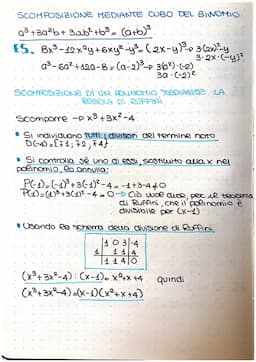 SCOMPOSIZIONE MEDIANTE CUBO DEL BINOMIO
a³+3a²b+3ab²+b³ = (a+b)³
ES. 8x³-12x²y+6xy²-y³=(2x-y)³→3(2x)²·-y
3·2x·(-y)²
a³-6a²+12a-8=(a-2)³→3(a²)·(-2)
3a·(-2)²
SCOMPOSIZIONE DI UN POLINOMIO MEDIANTE LA
REGOLA DI RUFFINI
Scomporre → x³+3x²-4
• Si individuano tutti i divisori del termine noto
D(-4)={±1,±2,±4}
• Si controlla se uno di essi, sostituito alla x nel
polinomio, lo annulla:
P(-1)=(-1)³+3(-1)²-4=-1+3-4≠0
P(1)=(1)³+3(1)²-4=0→Ciò vuol dire, per il teorema
di Ruffini, che il polinomio è
divisibile per (x-1)
• Usando lo schema della divisione di Ruffini.
1 0 3 -4
1 1 1 4
1 1 4 0
(x³+3x²-4):(x-1)=x²+x+4 quindi
(x³+3x²-4)=(x-1)(x²+x+4)